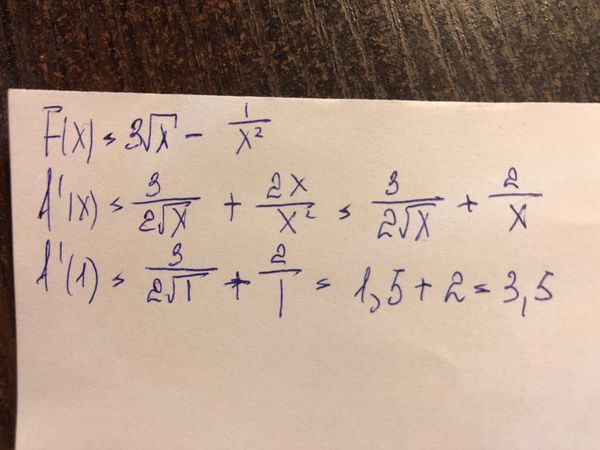 F(x) = 3√x - 1/x²
f'(x) = 3/(2√x) + 2x/x² = 3/(2√x) + 2/x
f'(1) = 3/(2√1) + 2/1 = 1,5 + 2 = 3,5